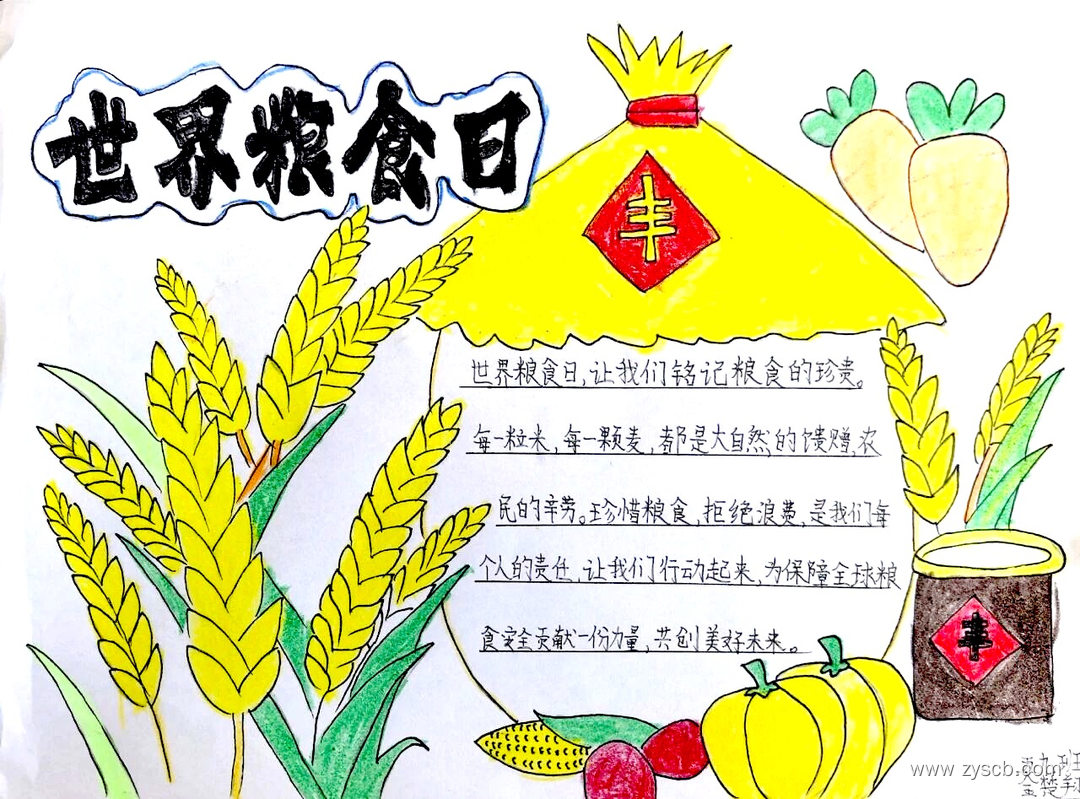 世界粮食日
丰
世界粮食日,让我们铭记粮食的珍贵。
每一粒米,每一颗麦,都是大自然的馈赠,农
民的辛劳。珍惜粮食,拒绝浪费,是我们每
个人的责任,让我们行动起来,为保障全球粮
食安全贡献一份力量,共创美好未来。
丰
九班
www.zyscb.com